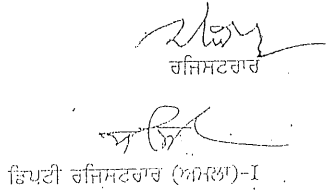 ਰਜਿਸਟਰਾਰ
ਡਿਪਟੀ ਰਜਿਸਟਰਾਰ (ਅਮਲਾ)-I